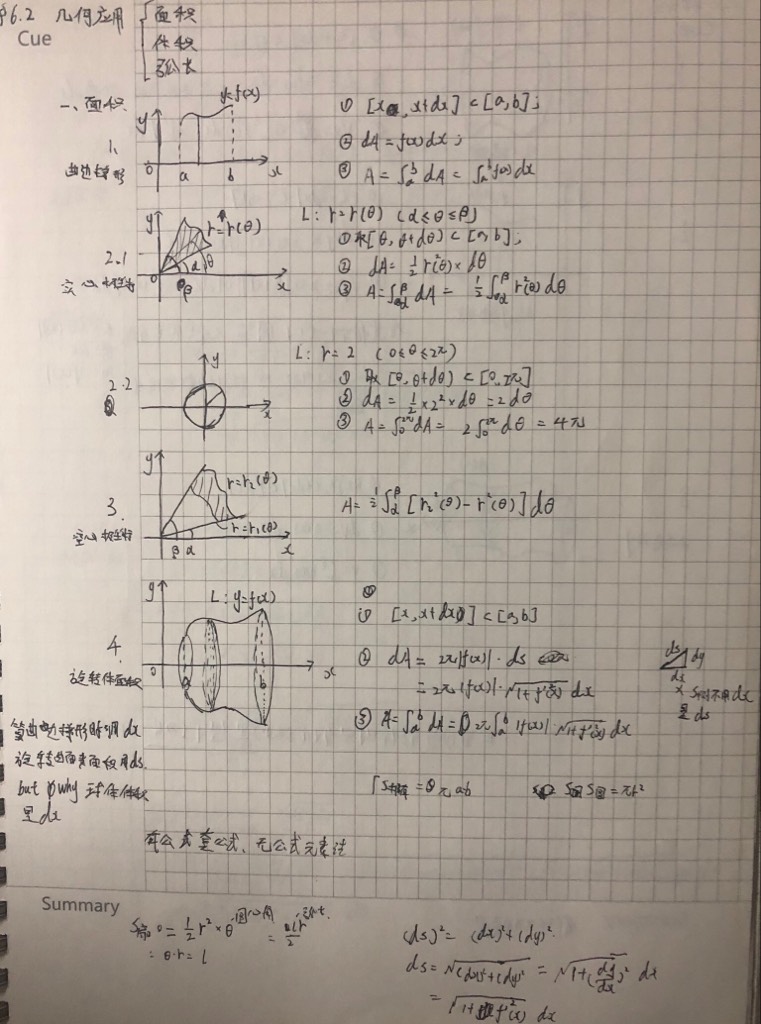 §6.2 几何应用
面积
体积
弧长
Cue
一、面积
1、
曲边梯形
y
y=f(x)
0 a b x
① [x, x+dx] ⊂ [a,b];
② dA = f(x)dx;
③ A = ∫ₐᵇ dA = ∫ₐᵇ f(x)dx
2.1
y
r=r(θ)
α θ
0 β x
L: r=r(θ) (α≤θ≤β)
①取[θ, θ+dθ] ⊂ [a,b];
② dA = 1/2 r²(θ) × dθ
③ A = ∫_α^β dA = 1/2 ∫_α^β r²(θ) dθ
2.2
y
x
L: r=2 (0≤θ≤2π)
① 取 [θ, θ+dθ] ⊂ [0, 2π]
② dA = 1/2 × 2² × dθ = 2dθ
③ A = ∫₀^2π dA = 2∫₀^2π dθ = 4π
3.
y
r=r₂(θ)
r=r₁(θ)
β α x
A = 1/2 ∫_α^β [r₂²(θ) - r²(θ)] dθ
4.
旋转体面积
y
L: y=f(x)
0 a b x
① [x, x+dx] ⊂ [a,b]
② dA = 2π|f(x)|·ds
= 2π|f(x)|·√(1+f'²(x)) dx
③ A = ∫ₐᵇ dA = 2π∫ₐᵇ |f(x)| √(1+f'²(x)) dx
ds dy
dx
不用dx
是ds
算曲边梯形时用dx
旋转曲面表面积用ds
but why 球体体积
是dx
S = πab S圆 = πr²
有公式套公式、无公式元素法
Summary
S扇 = 1/2 r² × θ 圆心角 = lr/2
∵ θ·r = l
(ds)² = (dx)² + (dy)²
ds = √((dx)²+(dy)²) = √(1+(dy/dx)²) dx
= √(1+f'²(x)) dx